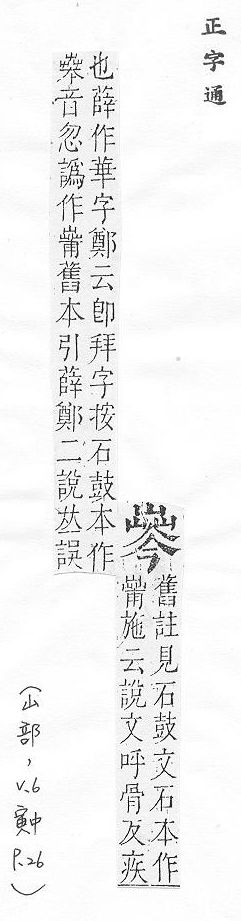 正字通
舊註見石鼓文石本作
施云說文呼骨反疾
也薛作華字鄭云卽拜字按石鼓本作
音忽譌作舊本引薛鄭二說𠀤誤
(山部, v.6 寅中 P.26)